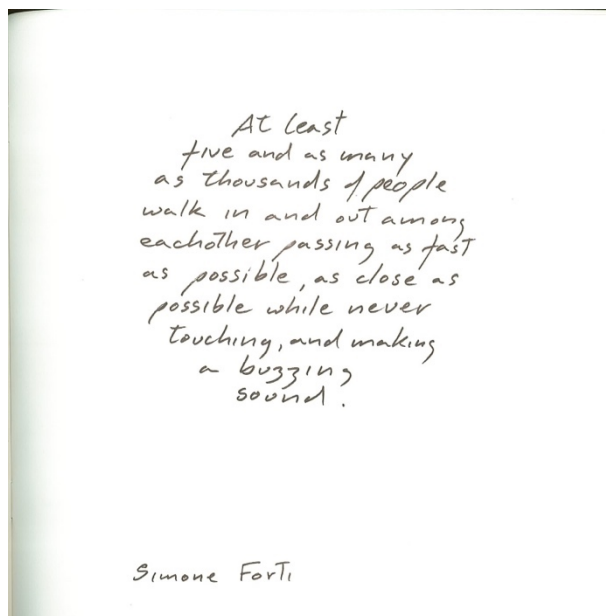 At least
five and as many
as thousands of people
walk in and out among
eachother passing as fast
as possible, as close as
possible while never
touching, and making
a buzzing
sound.
Simone Forti